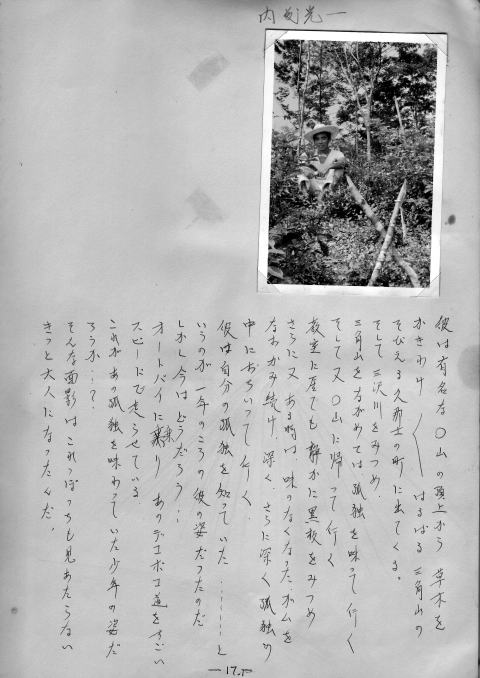 内 光一
彼は有名な〇山の頂上から 草木を
かきわけ はるばる 三角山の
そびえる久那土の町に出てくる。
そして三沢川をみつめ、
三角山をながめては孤独を味って行く
そして又〇山に帰って行く
教室に座ても静かに黒板をみつめ
さらに又ある時は、味のなくなったガムを
なおかみ続け、深く、さらに深く孤独の
中におちいって行く、
彼は自分の孤独を知っていた………と
いうのが一年のころの彼の姿だったのだ
しかし今はどうだろう…
オートバイに乗り あのデコボコ道をすごい
スピードで走らせている、
これがあの孤独を味わっていた少年の姿だ
ろうか…?
そんな面影はこれっぽっちも見あたらない
きっと大人になったんだ。
—17.—